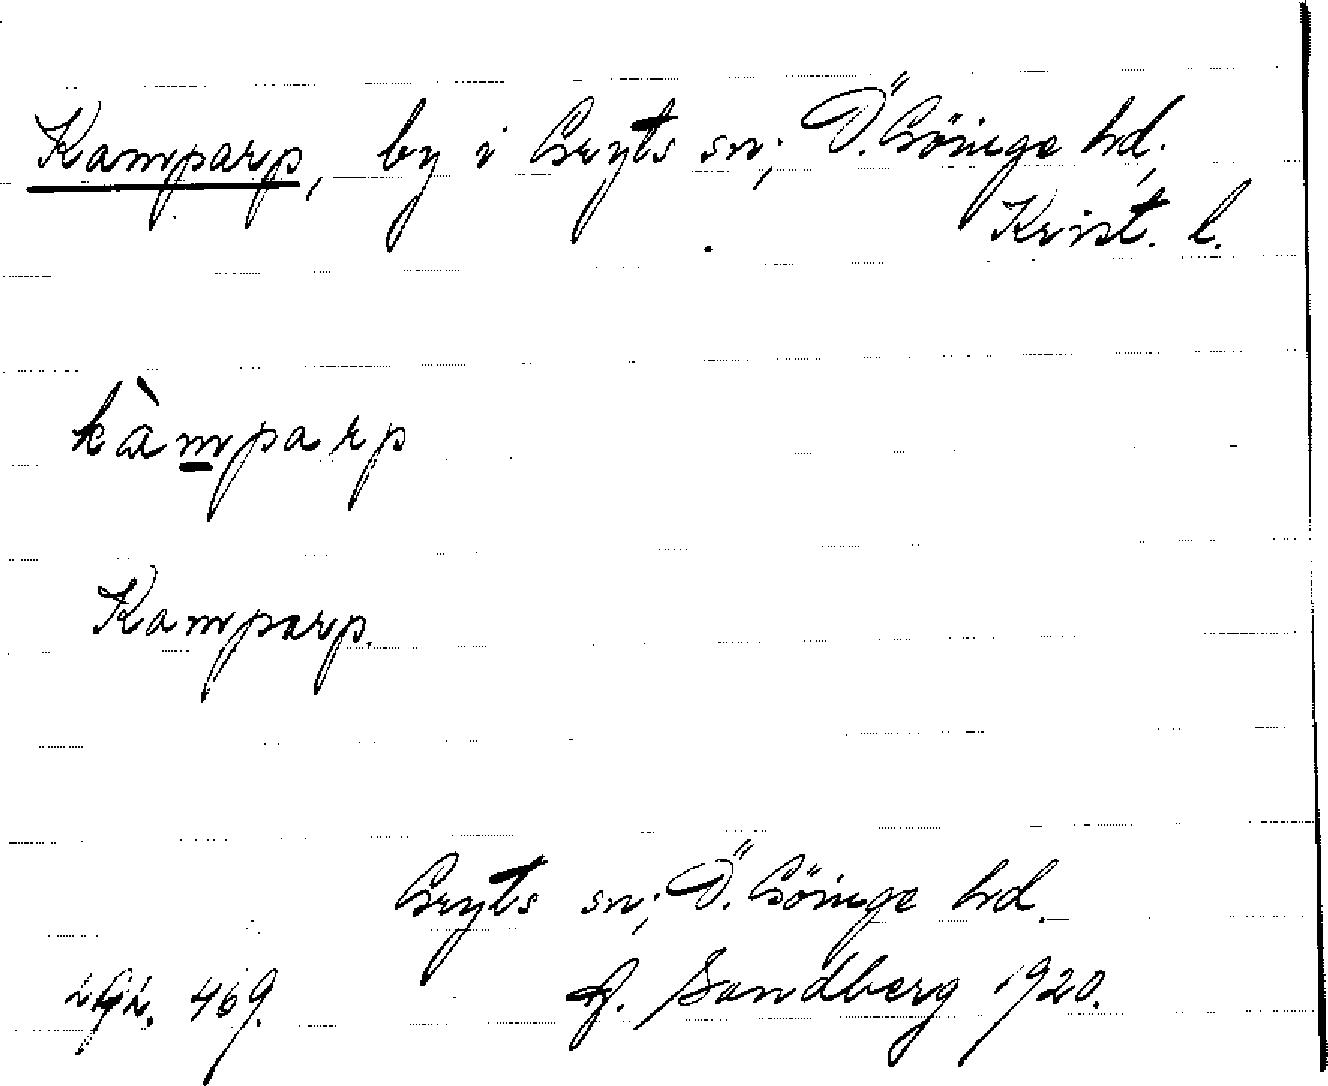 Kamparp, by i Gryts sn; Ö. Göinge hd;
Krist. l.
kàmparp
Kamparp.
Gryts sn; Ö. Göinge hd.
469. A. Sandberg 1920.